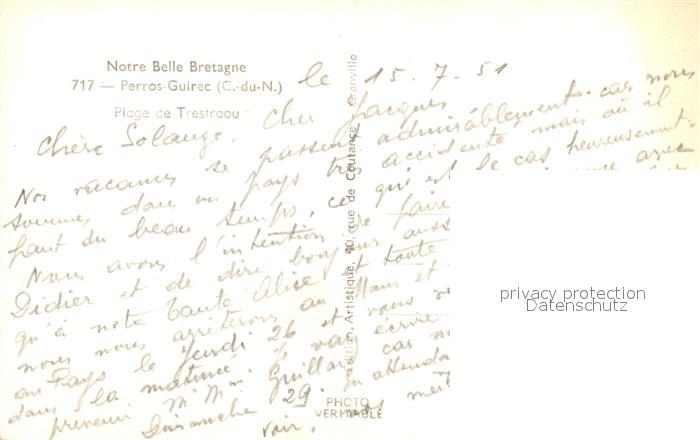 Notre Belle Bretagne
717 — Perros-Guirec (C.-du-N.)
Plage de Trestraou
le 15.7.51
Chère Solange, Cher Jacques
Nos vacances se passent admirablement car nous
sommes dans un pays très accidenté mais où il
faut du beau temps, ce qui est le cas heureusement.
Nous avons l'intention de faire avec
Didier et de dire bonjour aussi
qu'à notre tante Alice et toute
nous nous arrêterons au Mans et
au Pays le Jeudi 26 et vous
dans la matinée. Je vais écrire
prévenir Mr Mme Guillard car
Dimanche 29. En attendant
voir,
Artistique, 40, rue de Coutance Granville
PHOTO
VERITABLE
privacy protection
Datenschutz